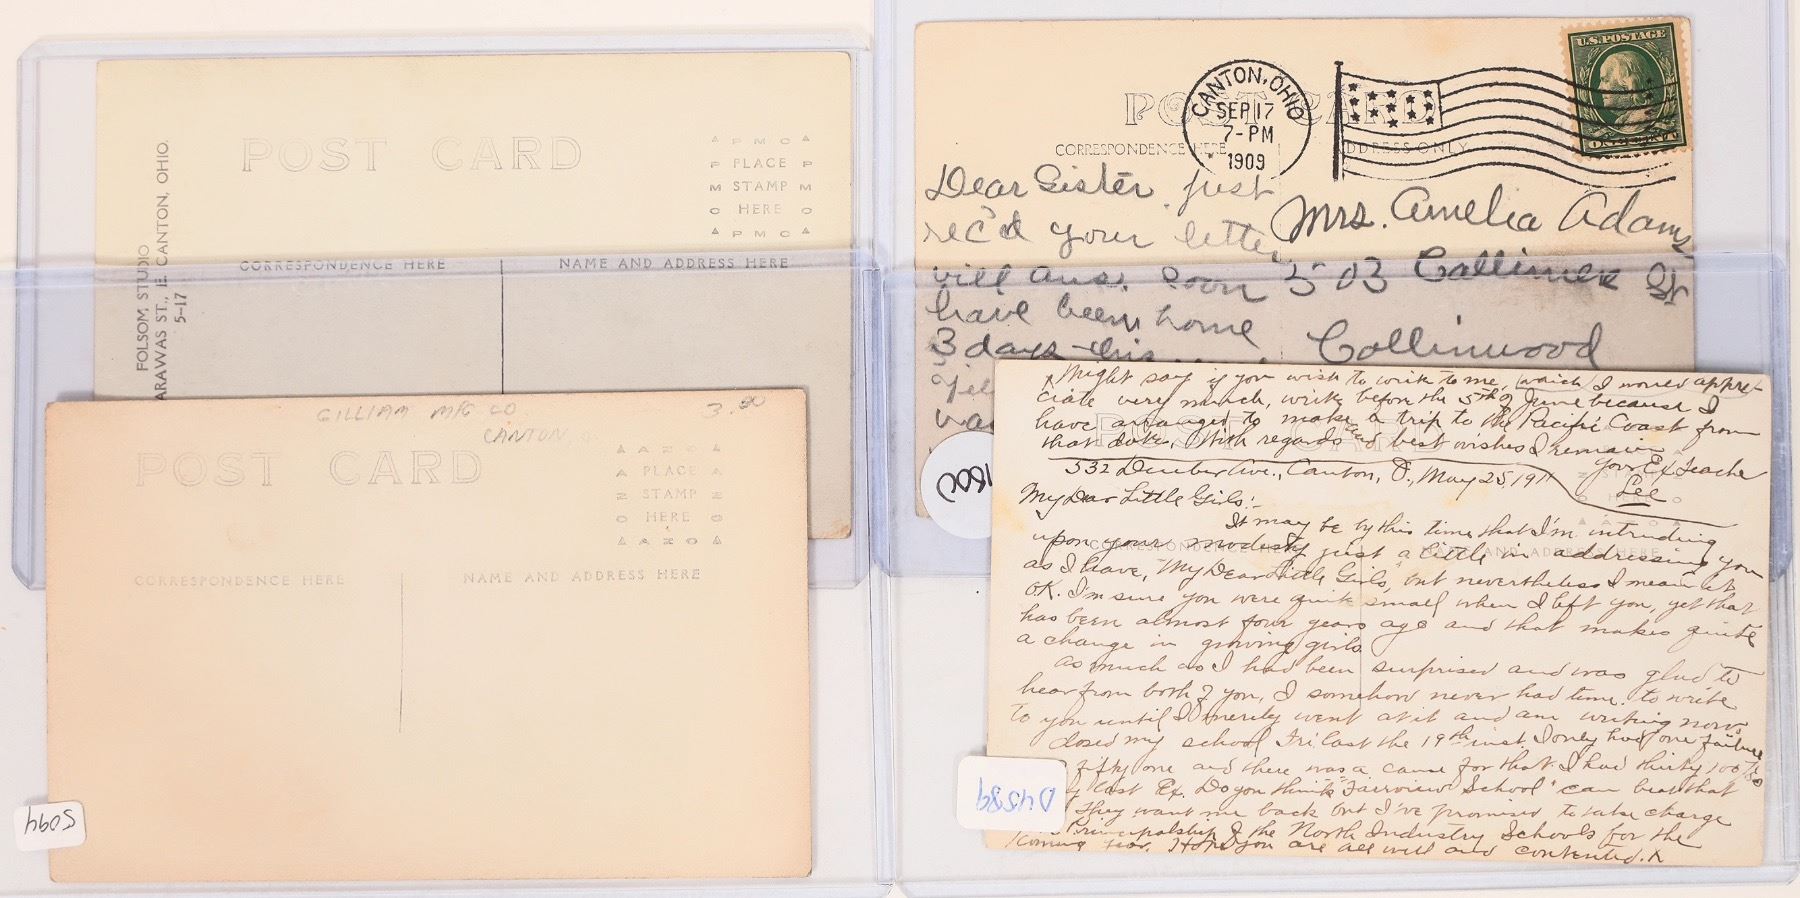 FOLSOM STUDIO
ARAWAS ST., E. CANTON, OHIO.
5-17
POST CARD
A P M C A
P PLACE P
M STAMP M
C HERE C
A P M C A
CORRESPONDENCE HERE
NAME AND ADDRESS HERE
GILLIAM MFG CO
CANTON, O
3.00
POST CARD
A A Z O A
A PLACE A
Z STAMP Z
O HERE O
A A Z O A
CORRESPONDENCE HERE
NAME AND ADDRESS HERE
5094
POST CARD
CORRESPONDENCE HERE
ADDRESS ONLY
CANTON, OHIO
SEP 17
7-PM
1909
U.S. POSTAGE
Dear Sister just
rec'd your letter
will ans. soon
have been home
3 days this
Mrs. Amelia Adams
503 Collimer St
Collinwood
Might say if you wish to write to me, (which I would appre-
ciate very much, write before the 5th of June because I
have arranged to make a trip to the Pacific Coast from
that date. With regards and best wishes I remain
your Ex Teacher
Lee
532 Dueber Ave., Canton, O., May 25 1911
My Dear Little Girls:-
It may be by this time that I'm intruding
upon your modesty just a little in addressing you
as I have, "My Dear Little Girls," but nevertheless I mean it
OK. I'm sure you were quite small when I left you, yet that
has been almost four years ago and that makes quite
a change in growing girls.
As much as I had been surprised and was glad to
hear from both of you, I somehow never had time to write
to you until I merely went at it and am writing now.
closed my school Fri. last the 19th inst. I only had one failure
fifty one and there was a cause for that. I had thirty 100%s
last Ex. Do you think "Fairview School" can beat that
They want me back but I've promised to take charge
Principalship of the North Industry Schools for the
coming year. Hope you are all well and contented. X
D4589